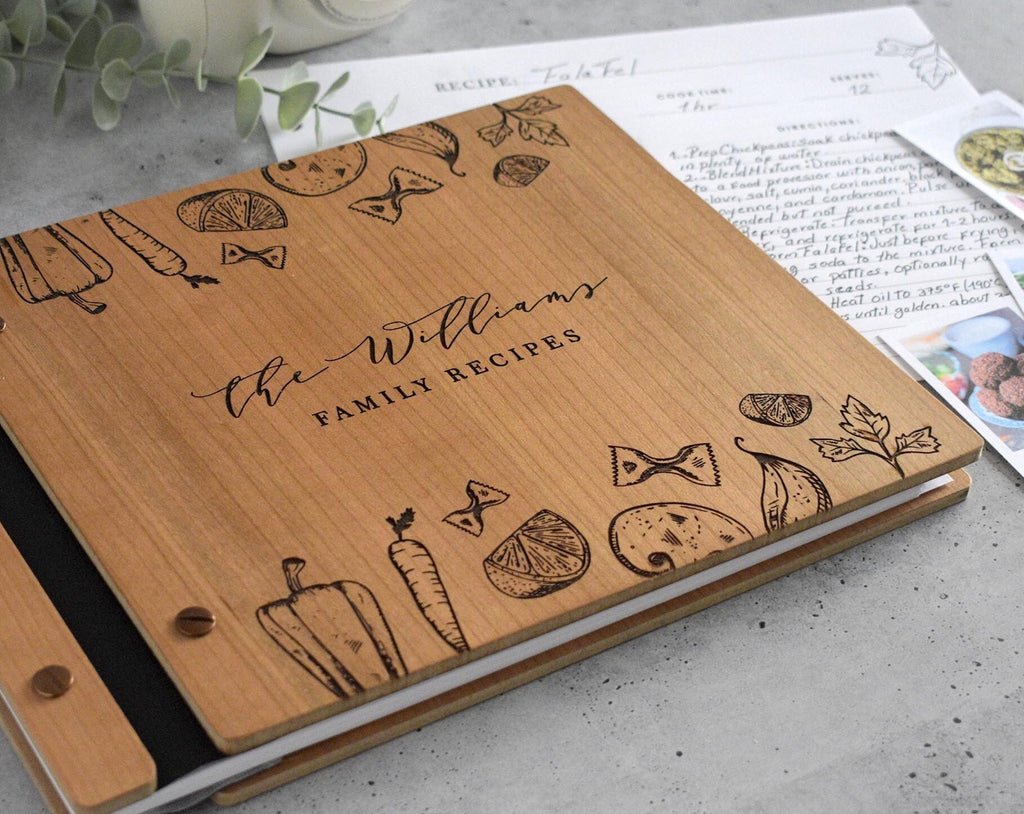 the Williams
FAMILY RECIPES
RECIPE: Falafel
COOK TIME: SERVES:
1hr 12
DIRECTIONS:
1. Prep Chickpeas: Soak chickpe
in plenty of water.
2. Blend Mixture: Drain chickpea
to a food processor with onion, par
salt, cumin, coriander, black
and cardamom. Pulse
but not pureed.
Refrigerate: Transfer mixture to a
and refrigerate for 1-2 hours
Falafel: Just before frying
soda to the mixture. Form
or patties, optionally ro
seeds.
Heat oil to 375°F (190°C
until golden. about 2